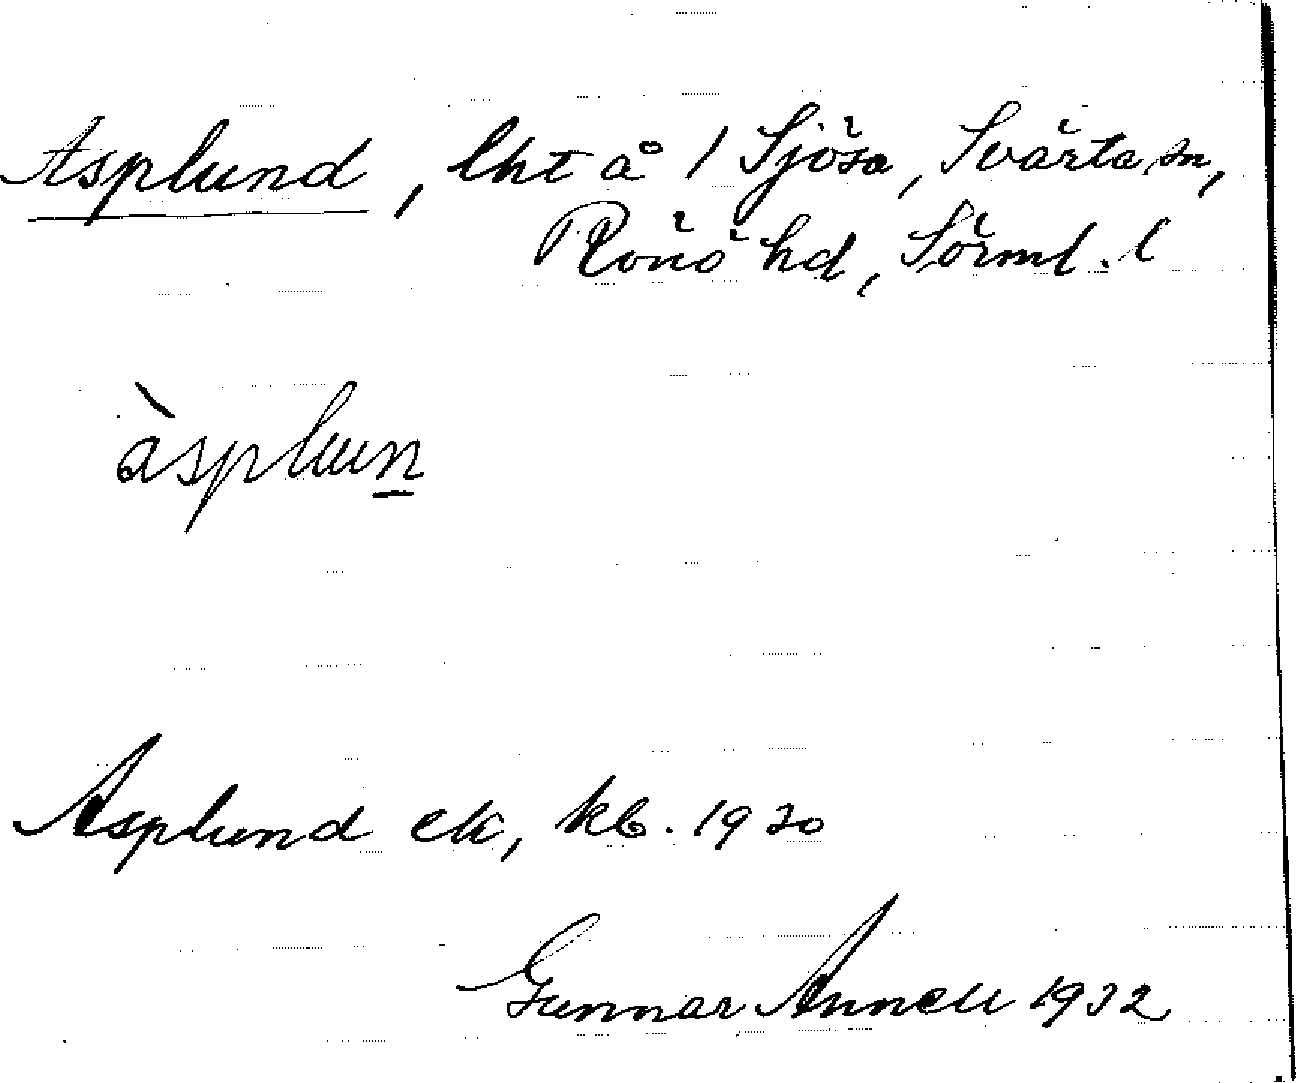 Asplund, lht å 1 Sjösa, Svärta sn,
Rönö hd, Sörml. l
àsplun
Asplund ek, kb. 1930
Gunnar Annell 1932